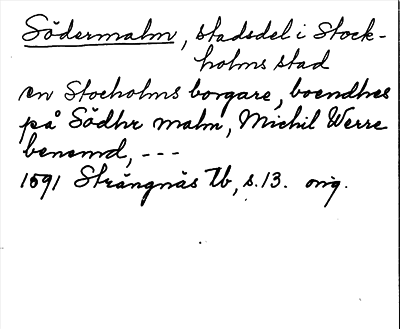 Södermalm, stadsdel i Stock-
holms stad
en Stocholms borgare, boendhes
på Södhr malm, Michil Werre
benemd, ---
1591 Strängnäs Tb, s. 13. orig.